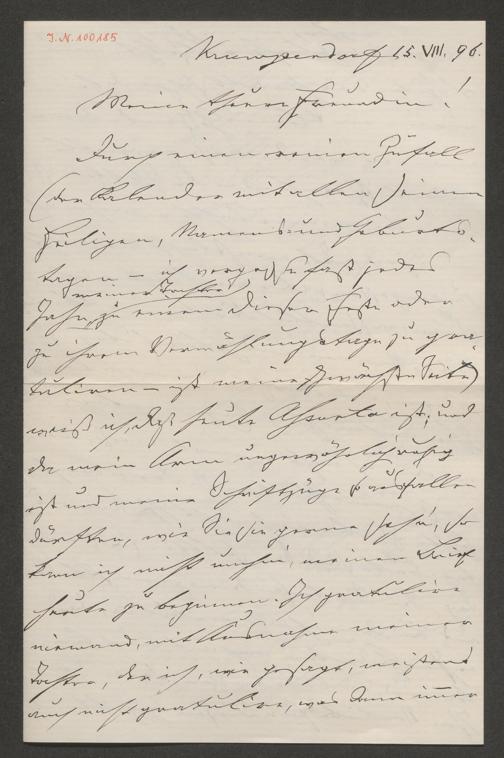 I.N. 100.185
Krumpendorf 15. VIII. 96.
Meine theure Freundin!
Durch einen reinen Zufall
(der Kalender mit allen seinen
Heiligen, Namens- und Geburts-
tagen – ich vergesse fast jedes
Jahr, meiner Tochter zu einem dieser Feste oder
zu ihrem Vermählungstage zu gra-
tuliren – ist meine schwächste Seite)
weiß ich, daß heute Assunta ist; und
da mein Arm ungewöhnlich ruhig
ist und meine Schriftzüge so ausfallen
dürften, wie Sie sie gerne seh'n, so
kann ich nicht umhin, meinen Brief
heute zu beginnen. Ich gratulire
niemand, mit Ausnahme meiner
Tochter, der ich, wie gesagt, meistens
auch nicht gratulire, was dann immer